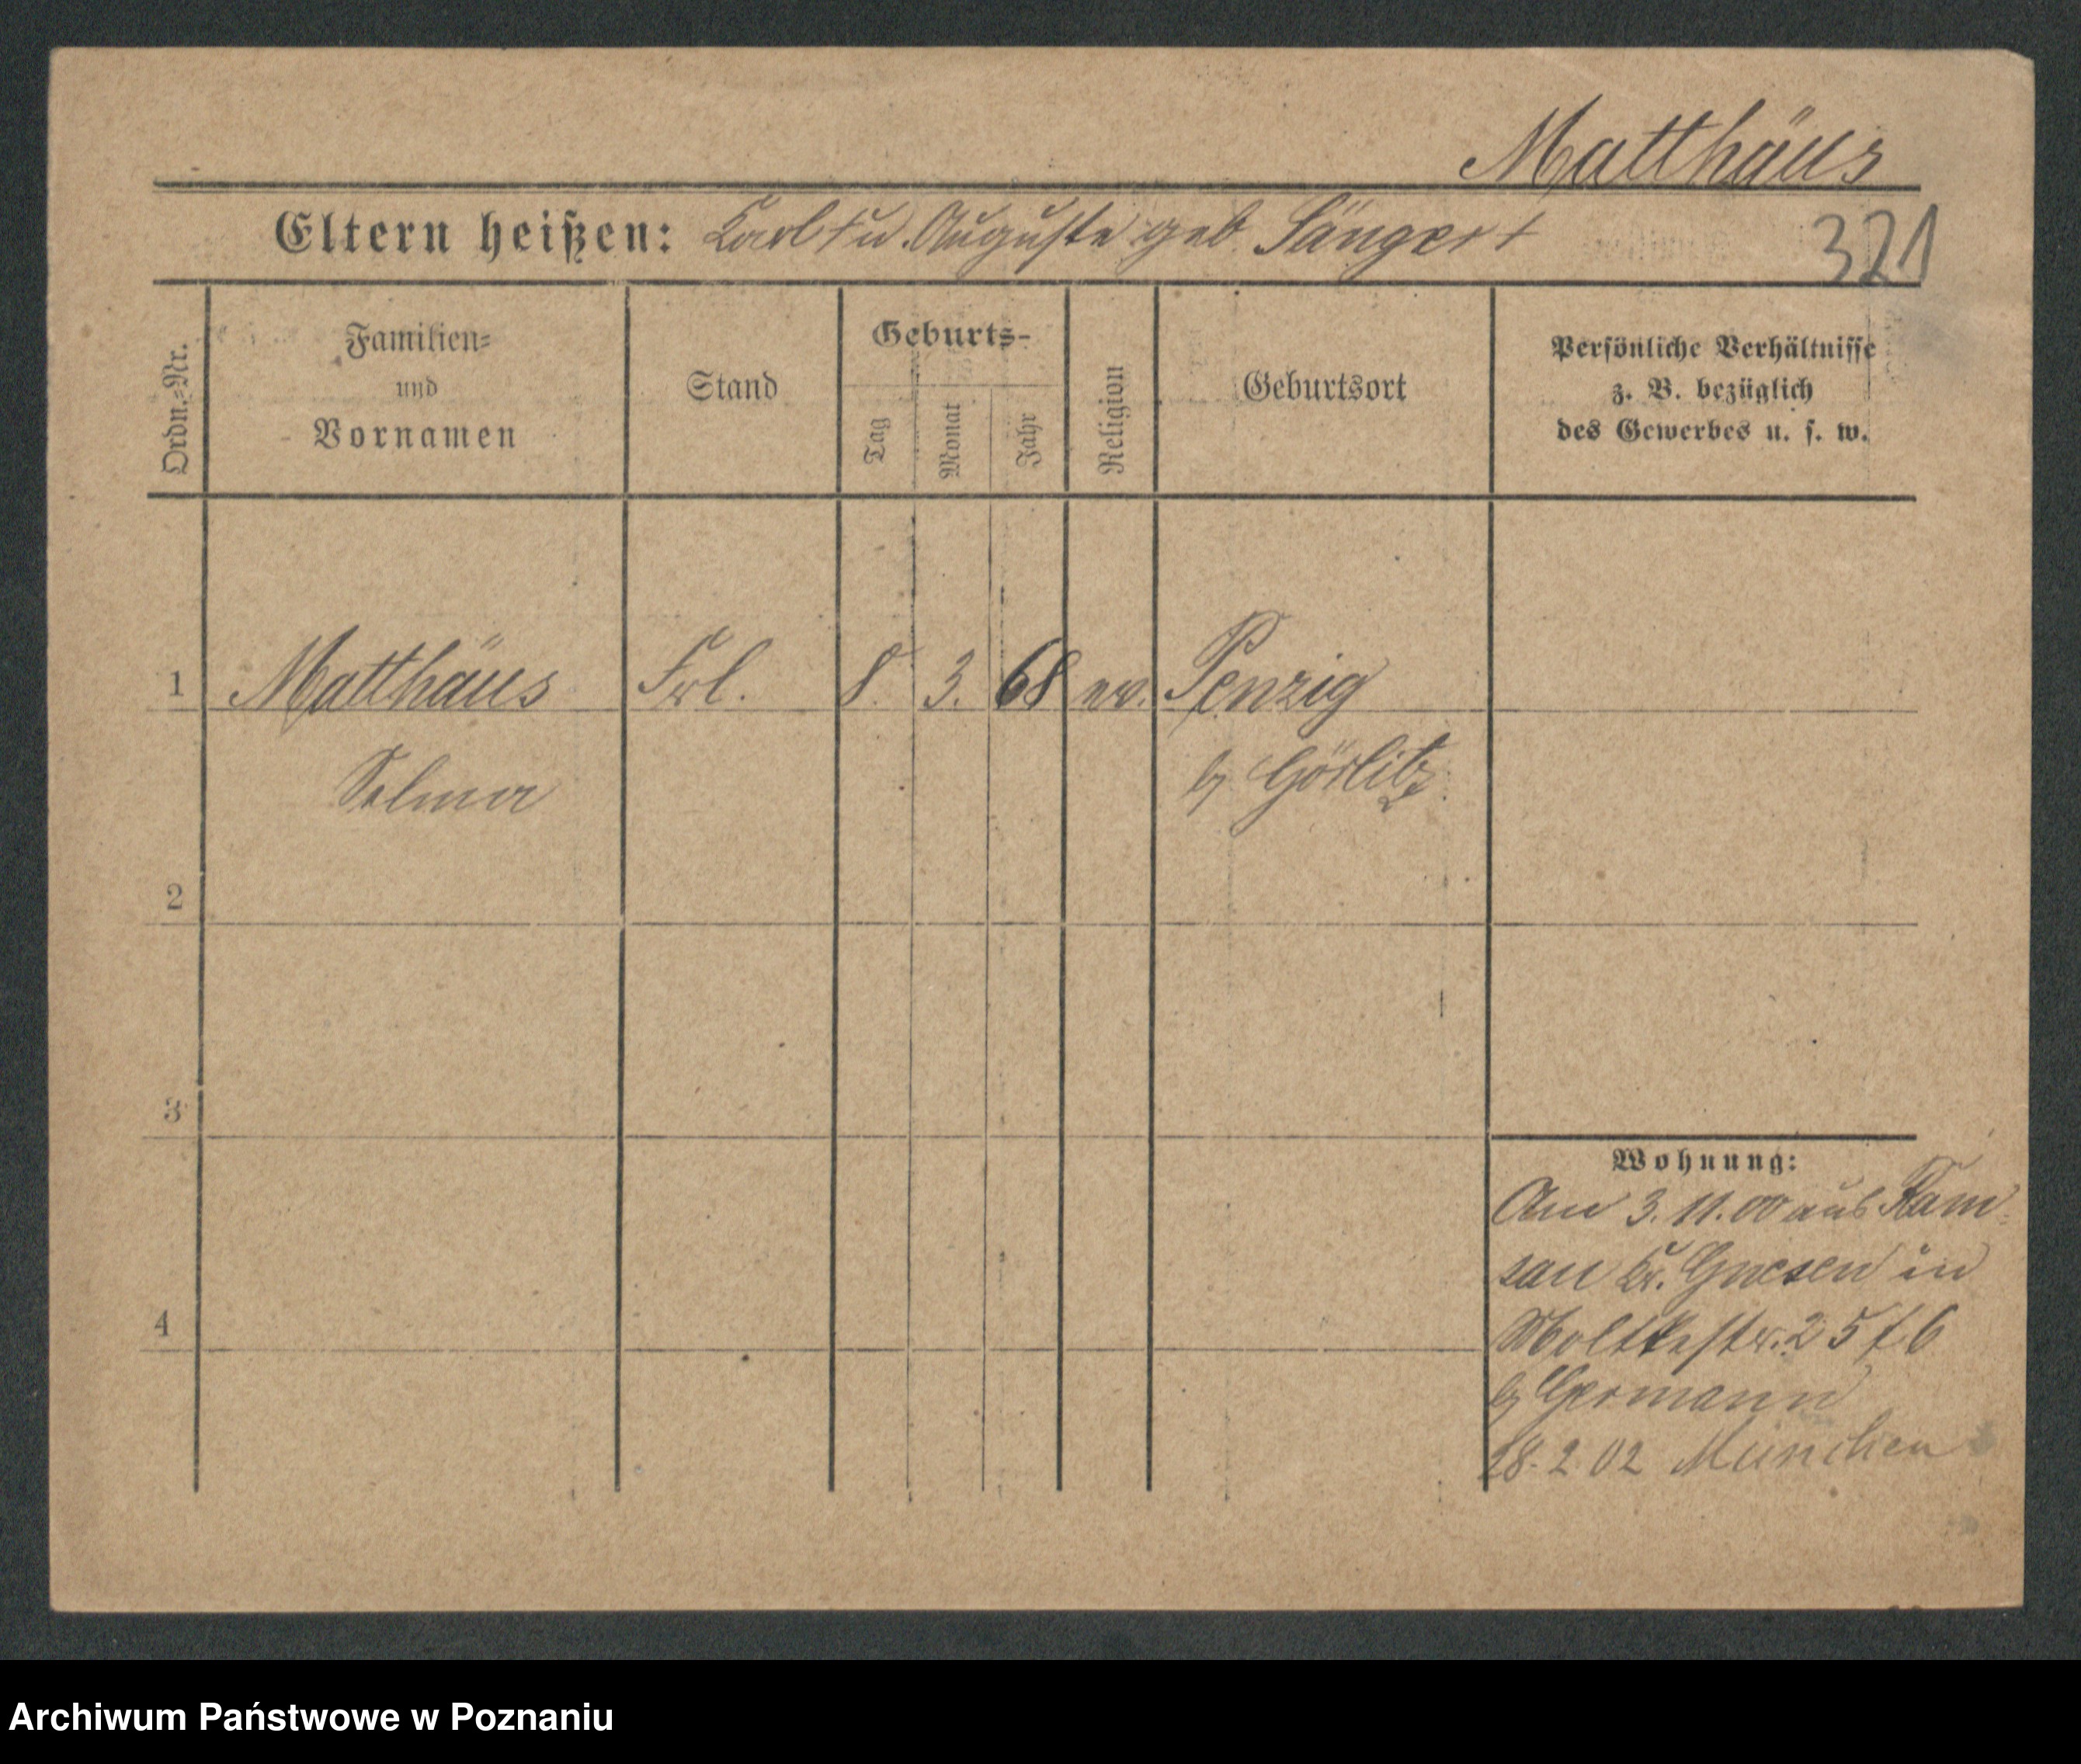 Matthäus
Eltern heißen: Karl † u. Auguste geb. Sänger †
321
Ordn.-Nr.
Familien-
und
Vornamen
Stand
Geburts-
Tag
Monat
Jahr
Religion
Geburtsort
Persönliche Verhältnisse
z. B. bezüglich
des Gewerbes u. s. w.
1 Matthäus Frl. 8. 3. 68 ev. Penzig
Selma b/ Görlitz
2
3
4
Wohnung:
Am 3.11.00 aus Kam-
Kr. Gnesen in
Moltkestr. 2 5 f. 6
b/ Germann
28. 2 02 München
Archiwum Państwowe w Poznaniu